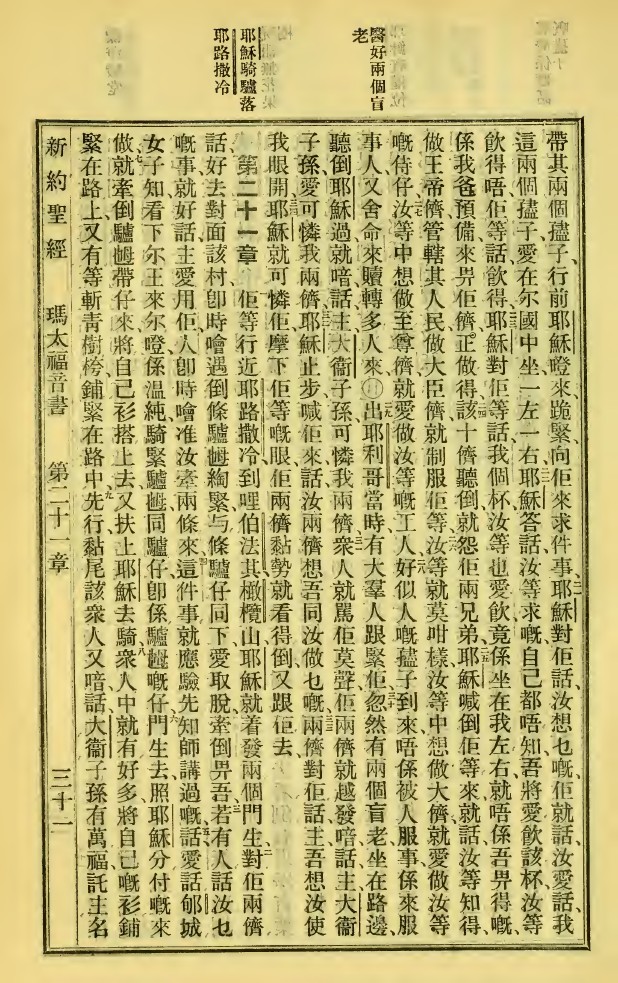 醫好兩個盲
老
耶穌騎驢落
耶路撒冷
帶其兩個𡥧子行前耶穌嶝來跪緊向佢來求件事耶穌對佢話汝想乜嘅佢就話汝愛話我
這兩個𡥧子愛在尔國中坐一左一右耶穌答話汝等求嘅自己都唔知吾將愛飲該杯汝等
飲得唔佢等話飲得耶穌對佢等話我個杯汝等也愛飲竟係坐在我左右就唔係吾畀得嘅
係我爸預備來畀佢儕正做得該十儕聽倒就怨佢兩兄弟耶穌喊倒佢等來就話汝等知得
做王帝儕管轄其人民做大臣儕就制服佢等汝等就莫咁樣汝等中想做大儕就愛做汝等
嘅侍仔汝等中想做至尊儕就愛做汝等嘅工人好似人嘅𡥧子到來唔係被人服事係來服
事人又舍命來贖轉多人來出耶利哥當時有大羣人跟緊佢忽然有兩個盲老坐在路邊
聽倒耶穌過就喑話主大衞子孫可憐我兩儕衆人就駡佢莫聲佢兩儕就越發喑話主大衞
子孫愛可憐我兩儕耶穌止步喊佢來話汝兩儕想吾同汝做乜嘅兩儕對佢話主吾想汝使
我眼開耶穌就可憐佢摩下佢等嘅眼佢兩儕黏勢就看得倒又跟佢去
第二十一章 佢等行近耶路撒冷到哩伯法其橄欖山耶穌就着發兩個門生對佢兩儕
話好去對面該村卽時噲遇倒條驢𡜵綯緊与條驢仔同下愛取脫牽倒畀吾若有人話汝乜
嘅事就好話主愛用佢人卽時噲准汝牽兩條來這件事就應驗先知師講過嘅話愛話郇城
女子知看下尔王來尔嶝係温純騎緊驢𡜵同驢仔卽係驢𡜵嘅仔門生去照耶穌分付嘅來
做就牽倒驢𡜵帶仔來將自己衫搭上去又扶上耶穌去騎衆人中就有好多將自己嘅衫鋪
緊在路上又有等斬靑樹桍鋪緊在路中先行黏尾該衆人又喑話大衞子孫有萬福託主名
新約聖經 瑪太福音書 第二十一章 三十一